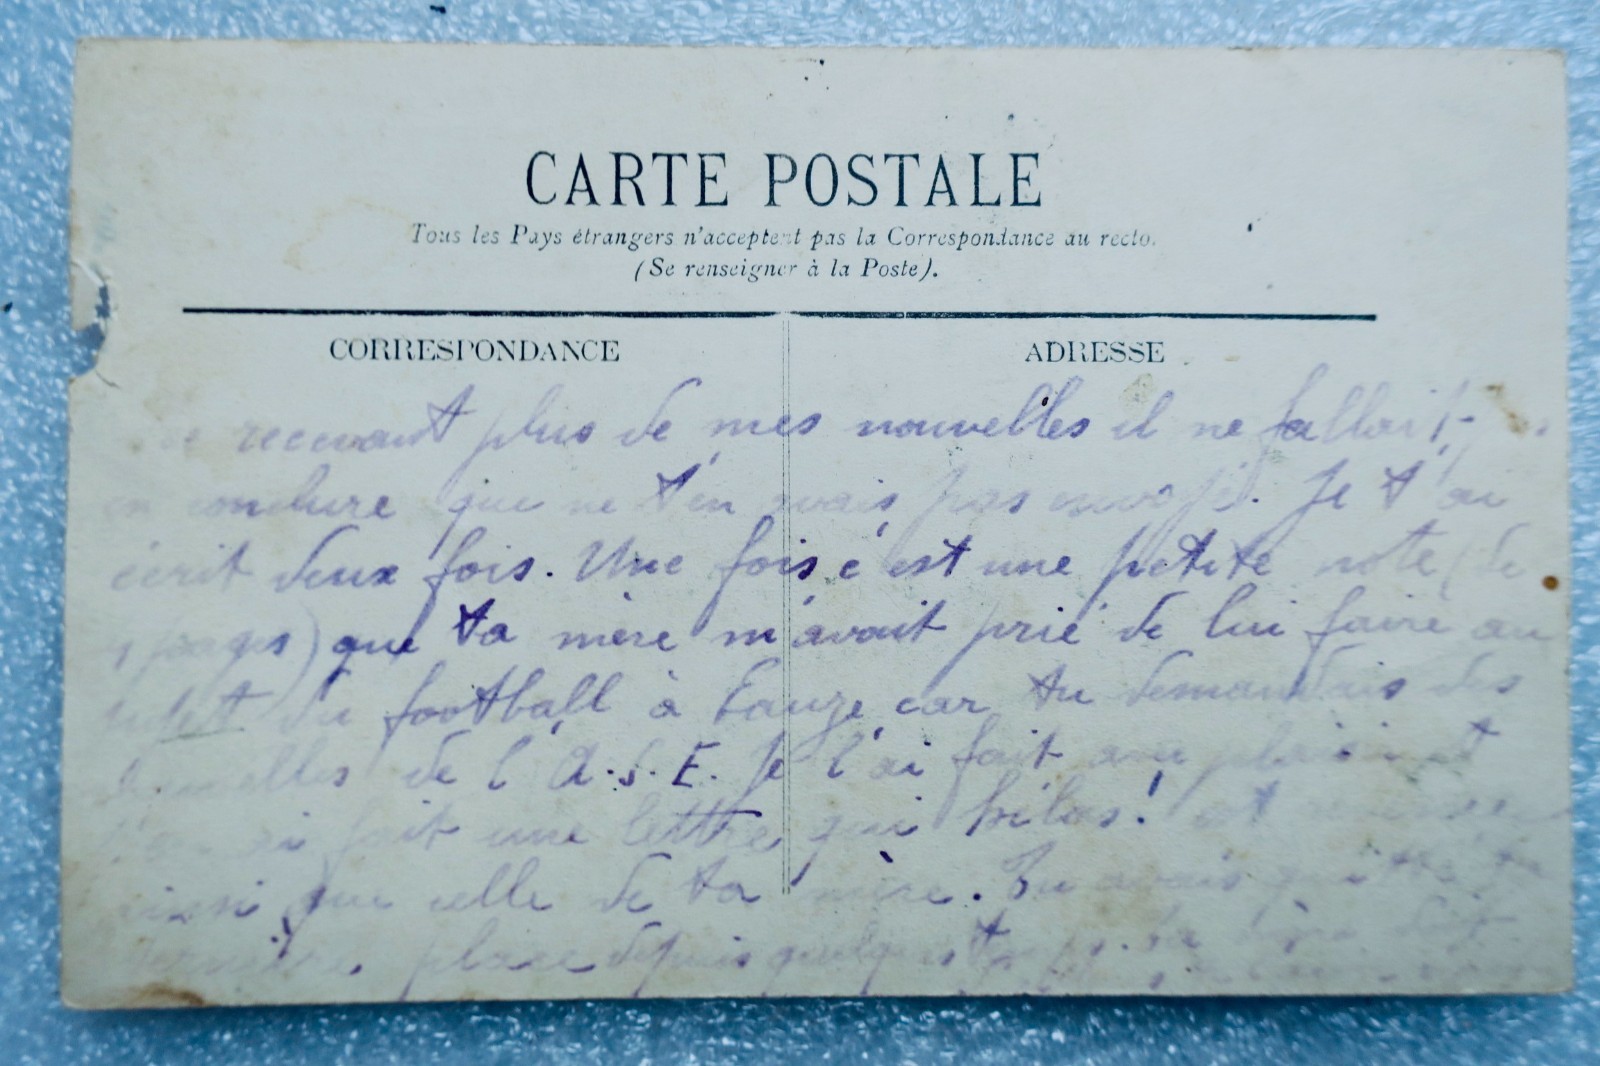 CARTE POSTALE
Tous les Pays étrangers n'acceptent pas la Correspondance au recto.
(Se renseigner à la Poste).
CORRESPONDANCE
ADRESSE
recevant plus de mes nouvelles il ne fallait pas
en conclure que ne t'en avais pas envoyé. Je t'ai
écrit deux fois. Une fois c'est une petite note (de
4 pages) que ta mère m'avait prié de lui faire au
sujet du football à Eauze, car tu demandais des
nouvelles de l'A.S.E. Je l'ai fait avec plaisir et
t'en ai fait une lettre qui hélas! est
ainsi que celle de ta mère. Tu avais quitté ta
dernière place depuis quelques temps.